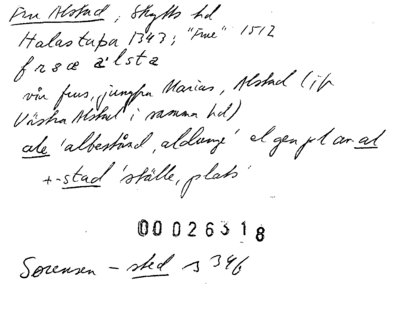 Fru Alstad, Skytts hd
Halastapa 1343; "Frue" 1512
fruæ alsta
vår frus, jungfru Marias, Alstad (jfr
Västra Alstad i samma hd)
ale 'albestånd, aldunge' el gen pl av al
+ -stad 'ställe, plats'
00026318
Sørensen - sted s 346